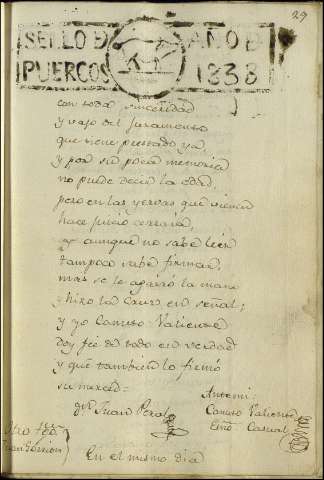 29
SELLO D AÑO D
PUERCOS 1838
con toda sinceridad
y vajo del juramento
que tiene prestado ya,
y por su poca memoria
no puede decir la edad,
pero en las yervas que tiene
hace juicio cerraria,
y aunque no sabe leer
tampoco sabe firmar,
mas se le agarró la mano
è hizo la Cruz en señal;
y yo Camuso Valiente
doy feé de todo en verdad
y que tambien lo firmó
su merced =
Juan Peral
Antemi:
Camuso Valiente
Esno Casual
Otro tgo
Juan
En el mismo dia